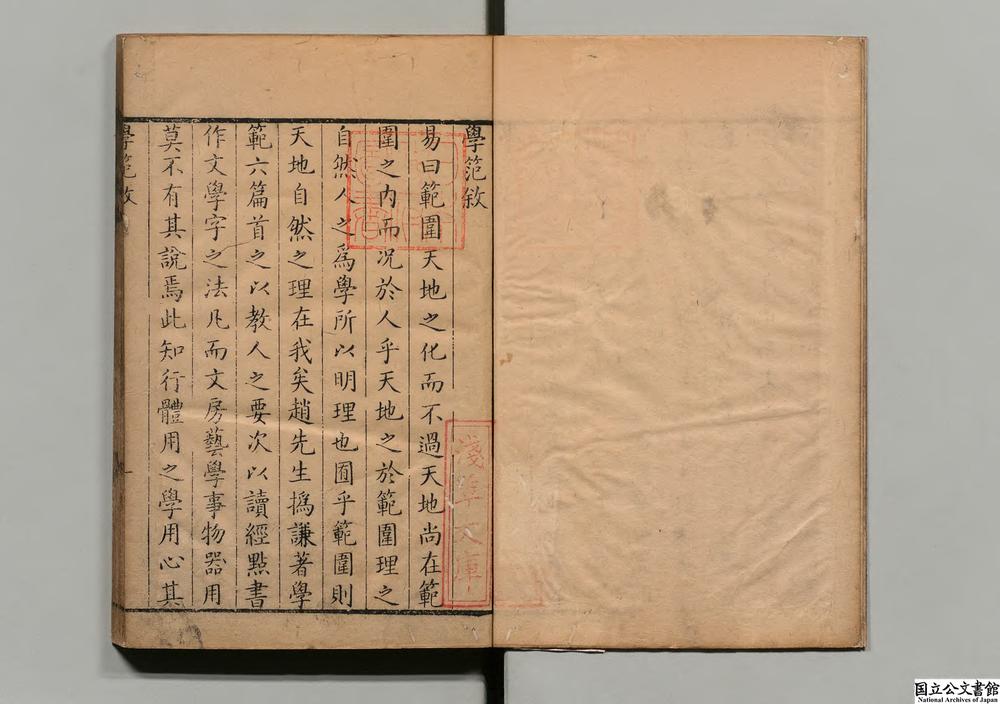 學範敘
易曰範圍天地之化而不過天地尚在範
圍之内而况於人乎天地之於範圍理之
自然人之爲學所以明理也囿乎範圍則
天地自然之理在我矣趙先生撝謙著學
範六篇首之以教人之要次以讀經點書
作文學字之法凡而文房藝學事物器用
莫不有其說焉此知行體用之學用心其
學範敘
淺草文庫
国立公文書館
National Archives of Japan